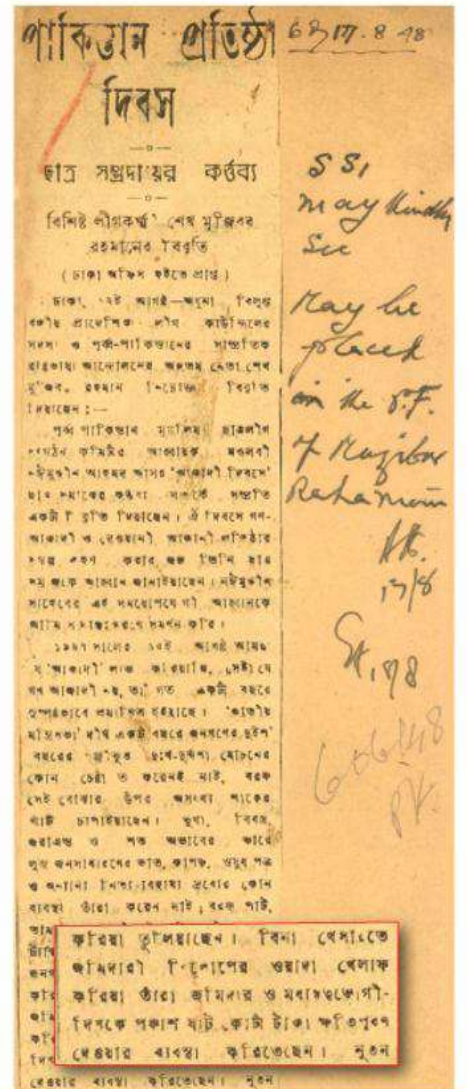 পাকিস্তান প্রতিষ্ঠা
দিবস
ছাত্র সম্প্রদায়ের কর্ত্তব্য
বিশিষ্ট লীগকর্ম্মী শেখ মুজিবর
রহমানের বিবৃতি
( ঢাকা অফিস হইতে প্রাপ্ত )
ঢাকা, ই আগষ্ট—অধুনা বিলুপ্ত
বঙ্গীয় প্রাদেশিক লীগ কাউন্সিলের
সদস্য ও পূর্ব্ব-পাকিস্তানের সাম্প্রতিক
রাষ্ট্রভাষা আন্দোলনের অন্যতম নেতা শেখ
মুজিবর রহমান নিম্নোক্ত বিবৃতি
দিয়াছেন :—
পূর্ব্ব পাকিস্তান মুসলিম ছাত্রলীগ
সংগঠন কমিটির আহ্বায়ক মওলবী
নঈমুদ্দীন আহমদ আসন্ন 'আজাদী দিবসে'
ছাত্র সমাজের কর্তব্য সম্পর্কে সম্প্রতি
একটা বিবৃতি দিয়াছেন। ঐ দিবসে গণ-
আজাদী ও আজাদী প্রতিষ্ঠার
গ্রহণ করার জন্য তিনি ছাত্র
সমাজকে আহ্বান জানাইয়াছেন। নঈমুদ্দীন
সাহেবের এই সময়োপযোগী আহ্বানকে
আমি সমর্থন করি।
১৯৪৭ সালের ১৫ই আগষ্ট আমরা
যে 'আজাদী' লাভ করিয়াছি, সেটা যে
গণ আজাদী নয়, তা' গত একটা বছরে
সুস্পষ্টভাবে প্রমাণিত হইয়াছে। 'জাতীয়
মন্ত্রিসভা' দীর্ঘ একটা বছরে জনগণের দুইশ'
বছরের পুঞ্জীভূত দুঃখ-দুর্দ্দশা মোচনের
কোন চেষ্টা ত করেনই নাই, বরঞ্চ
সেই বোঝার উপর অসংখ্য শাকের
আটি চাপাইয়াছেন। ভুখা, বিবস্ত্র,
জরাগ্রস্ত ও শত অভাবের ভারে
জনসাধারণের ভাত, কাপড়, ওষুধ পত্র
ও অন্যান্য নিত্য-ব্যবহার্য্য দ্রব্যের কোন
ব্যবস্থা তাঁরা করেন নাই; বরঞ্চ পাট,
করিয়া তুলিয়াছেন। বিনা খেসারতে
জমিদারী বিলোপের ওয়াদা খেলাফ
করিয়া তাঁরা জমিদার ও মধ্যস্বত্বভোগী-
দিগকে পঞ্চাশ ষাট কোটি টাকা ক্ষতিপূরণ
দেওয়ার ব্যবস্থা করিতেছেন। নূতন
দেওয়ার ব্যবস্থা করিতেছেন। নূতন
17.8.48
SSI
may kindly
see
May be
placed
in the P.F.
of Mujibar
Rahaman
17/8
606/48